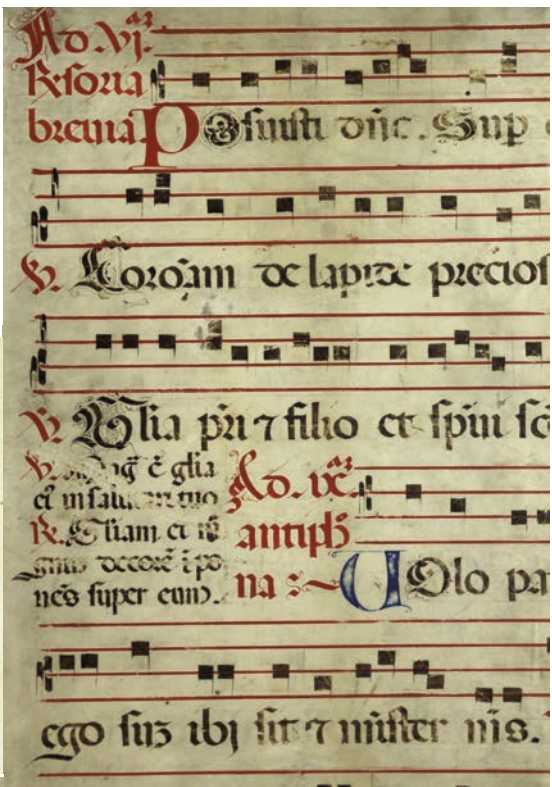 Ad .vj.
R. soria
breuia Posuisti dñe. Sup
V. Coronam de lapide precios
V. Glia pri ⁊ filio et spiu sc
V. Mag ē glia
ei in salutari tuo
R. Gliam et
gnum decorē ipo
nēs super eum.
Ad .ix.
antipho
na :~ Uolo pa
ego suz ibj sit ⁊ minister me9.